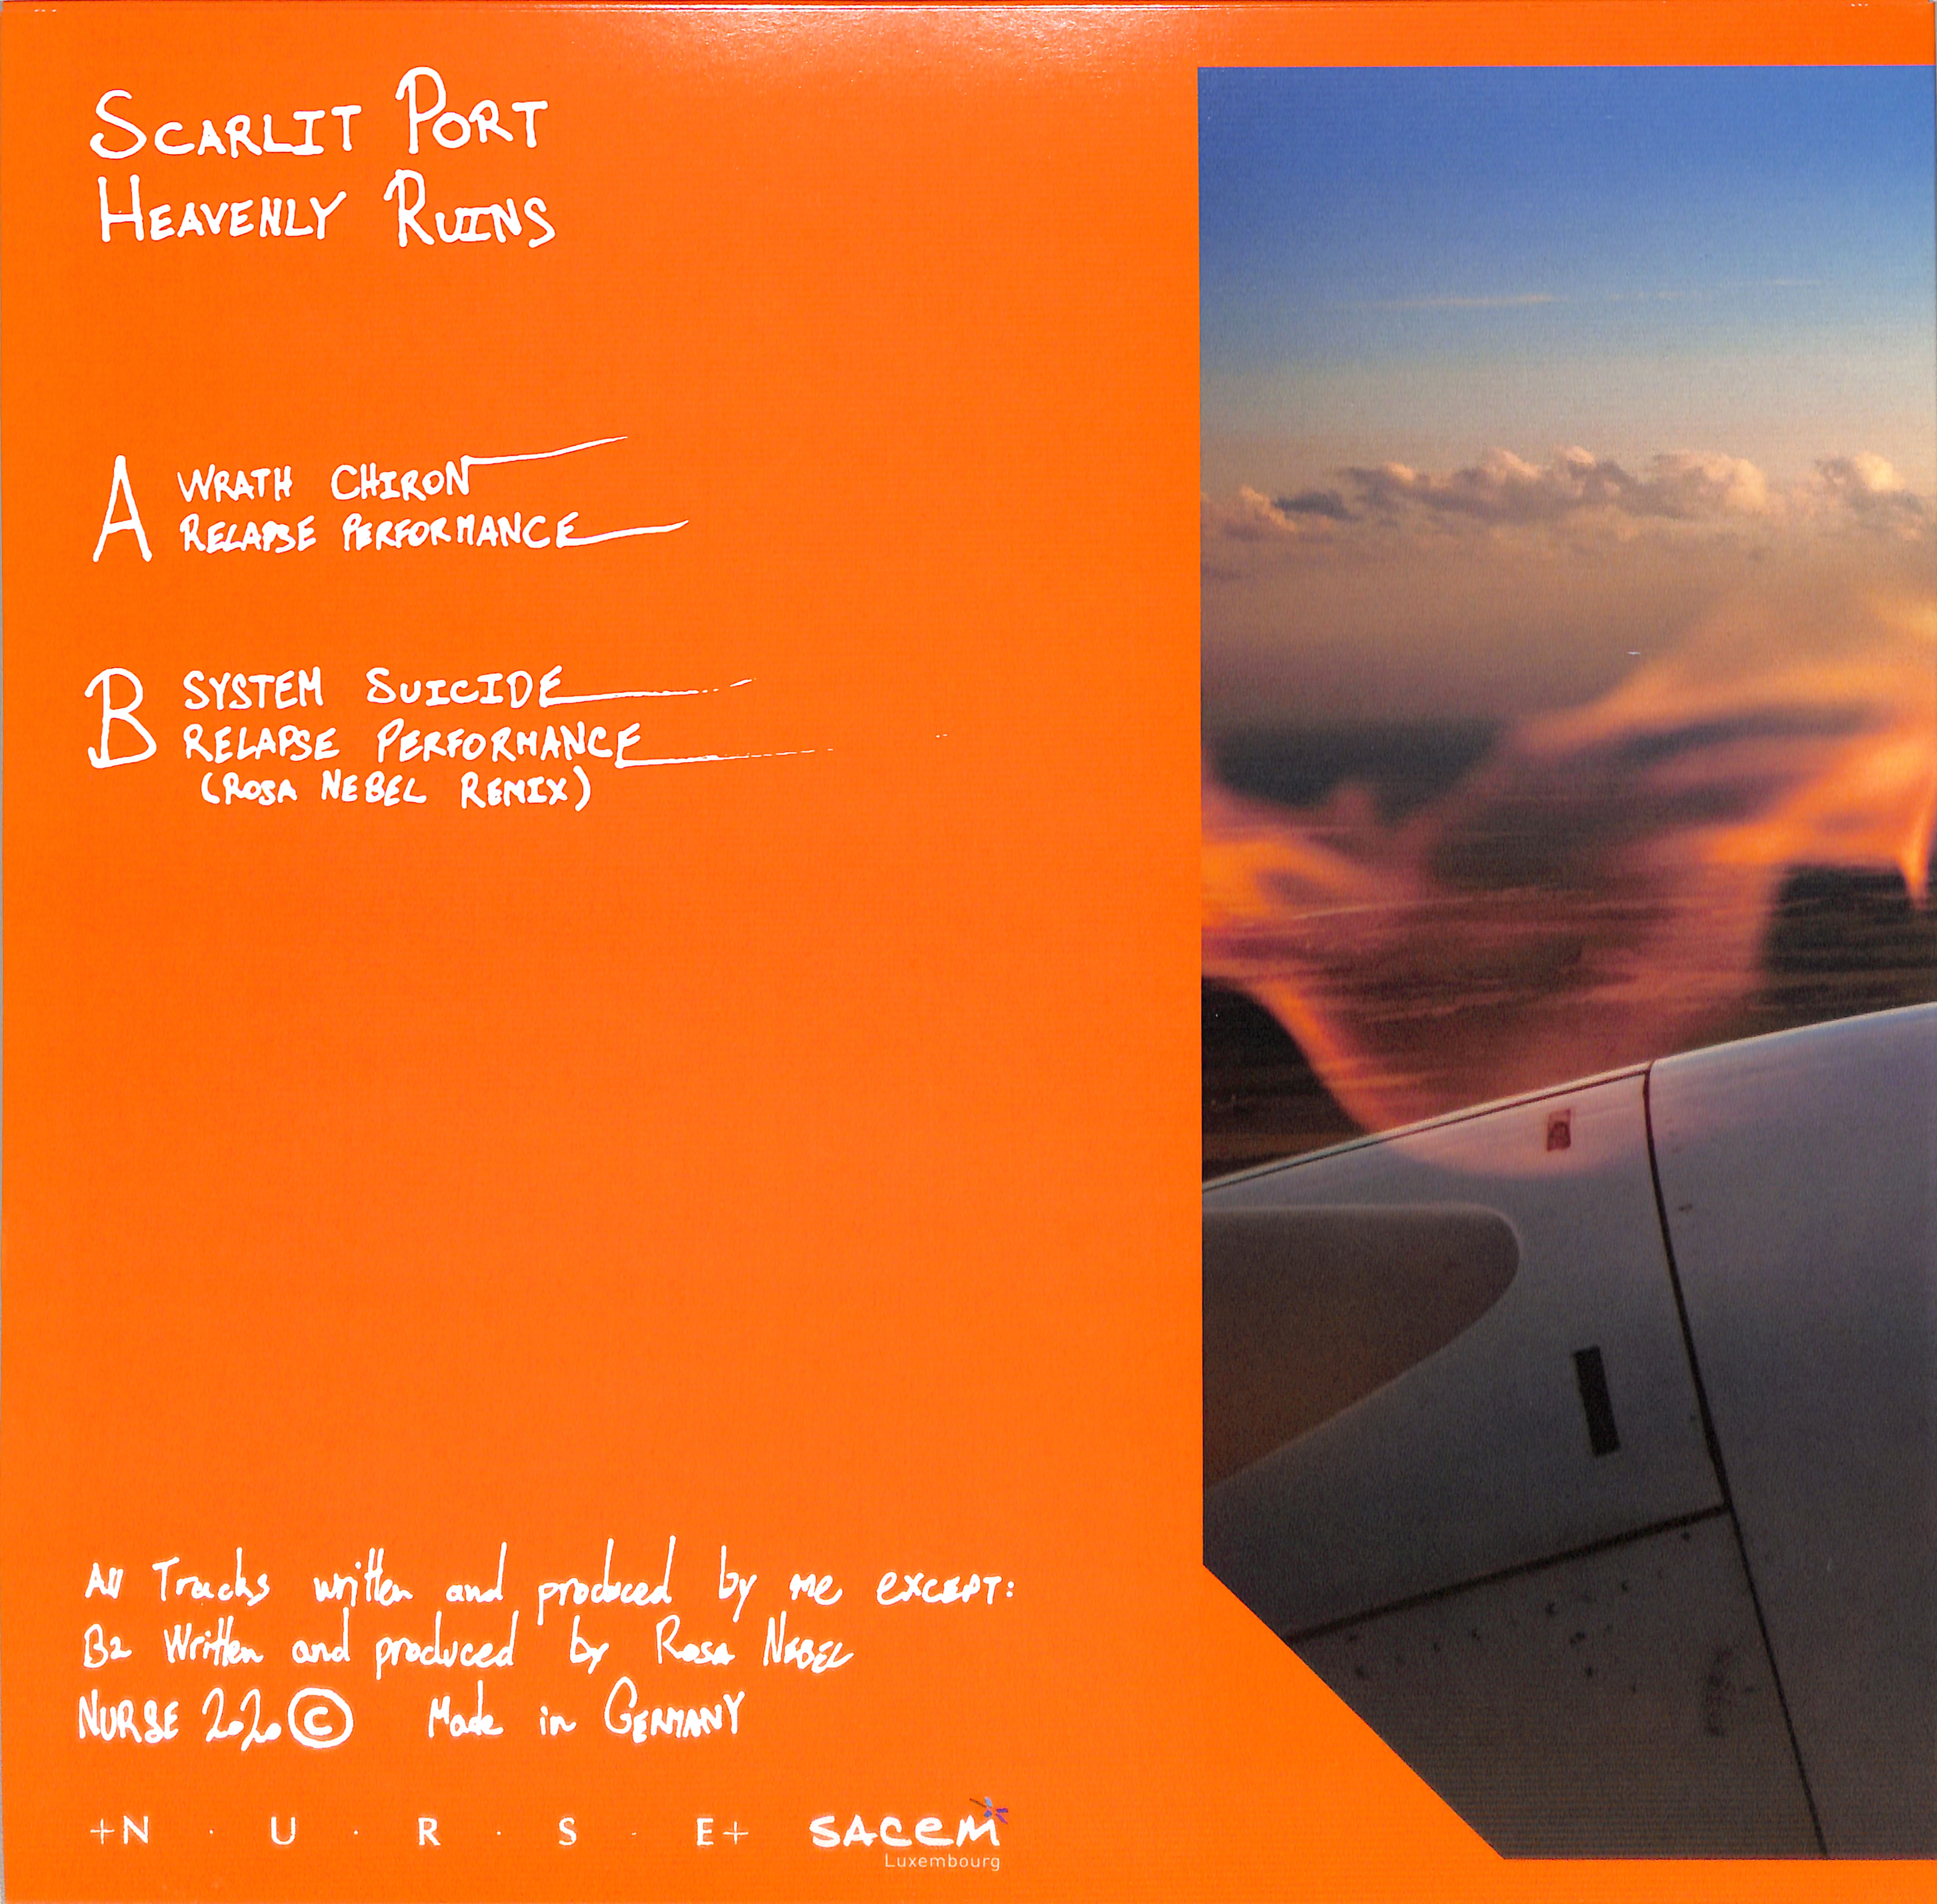 SCARLIT PORT
HEAVENLY RUINS
A WRATH CHIRON
RELAPSE PERFORMANCE
B SYSTEM SUICIDE
RELAPSE PERFORMANCE
(ROSA NEBEL REMIX)
All Tracks written and produced by me EXCEPT:
B2 Written and produced by Rosa NEBEL
NURSE 2020 © Made in GERMANY
+N · U · R · S · E+ sacem
Luxembourg